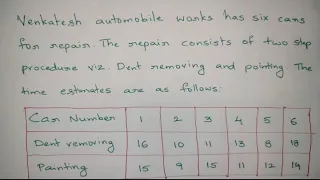 Venkatesh automobile works has six cars
for repair. The repair consists of two step
procedure viz. Dent removing and painting. The
time estimates are as follows:
Car Number 1 2 3 4 5 6
Dent removing 16 10 11 13 8 18
Painting 15 9 15 11 12 14